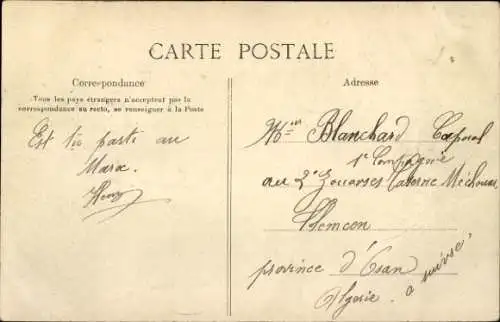 CARTE POSTALE
Correspondance
Tous les pays étrangers n'acceptent pas la
correspondance au recto, se renseigner à la Poste
Est tio parti au
Maroc.
Henry
Adresse
Blanchard Caporal
1e Compagnie
au 2e Zouaves Caserne Méchouar
Tlemcen
province d'Oran
Algérie. a suivre